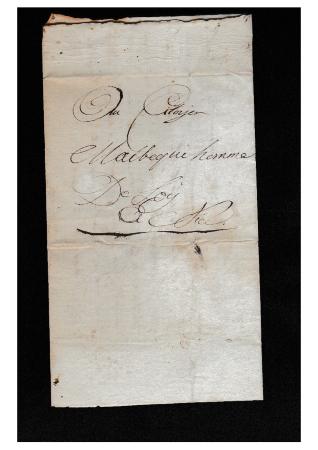 Au Citoyen
Malbequi homme
De Loy
A Nice